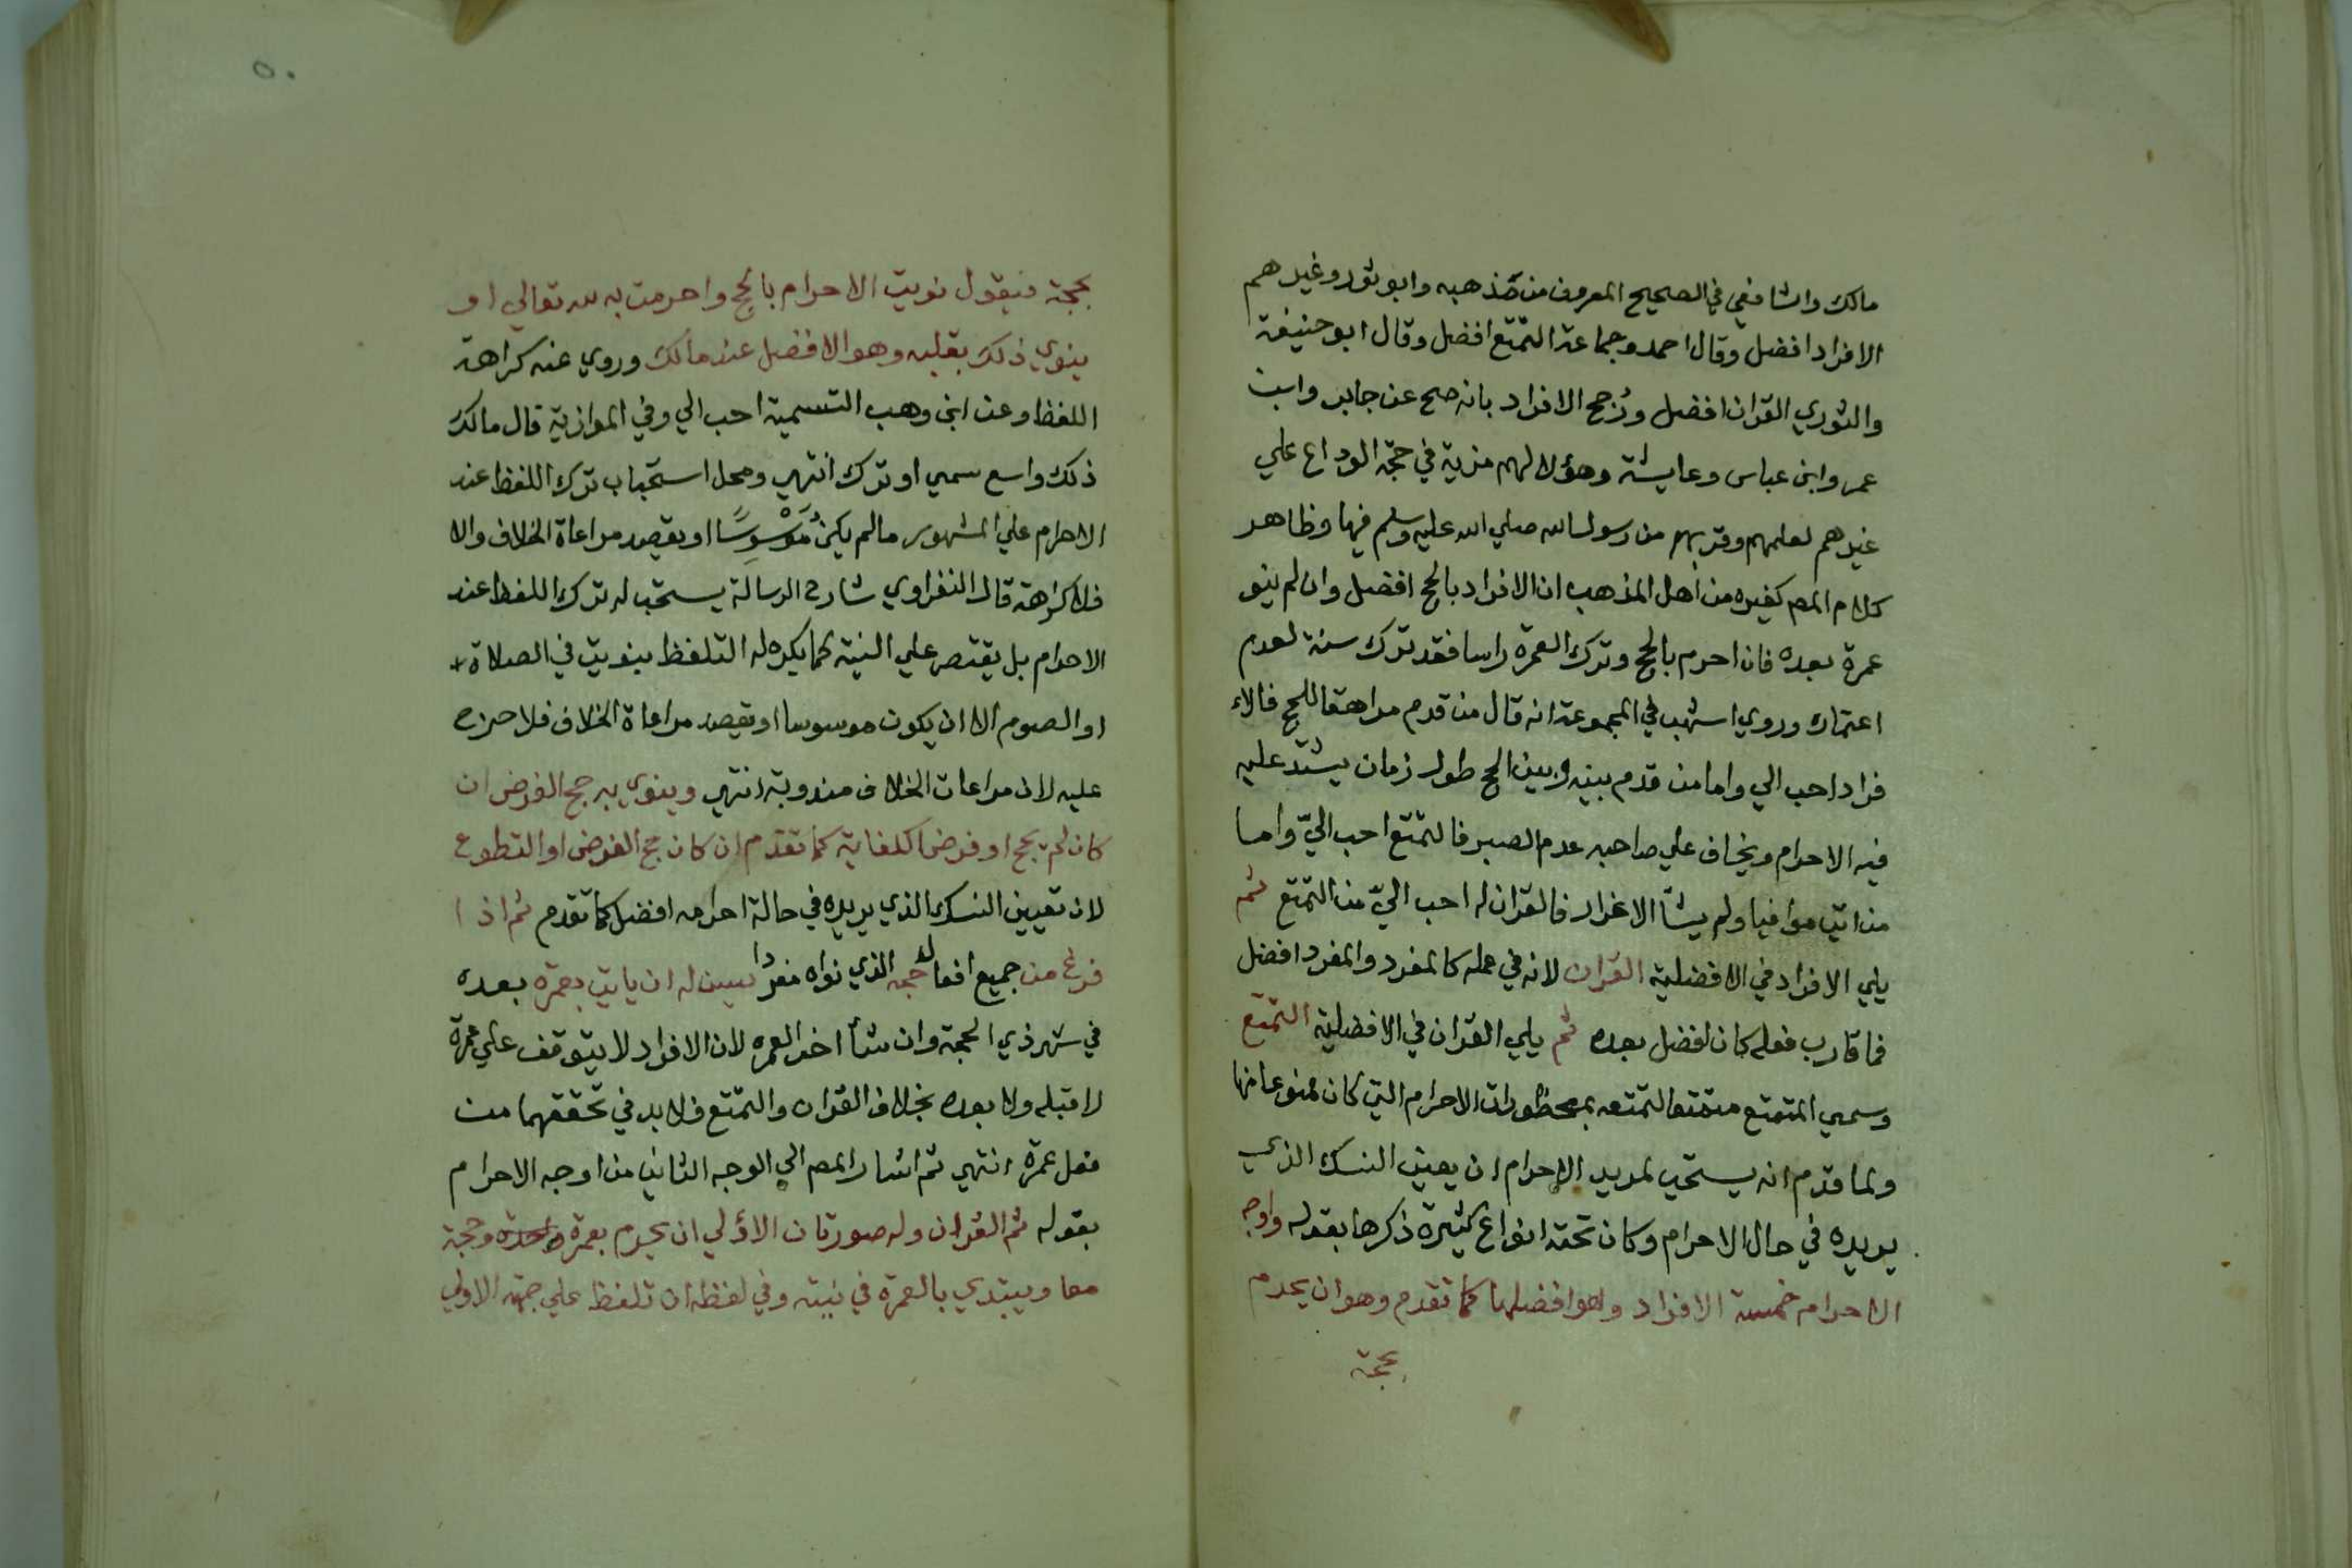 مالك والشافعي في الصحيح المعروف من مذهبه وابو ثور وغيرهم
الافراد افضل وقال احمد وجماعة التمتع افضل وقال ابو حنيفة
والثوري القران افضل ورُجح الافراد بانه صح عن جابر وابن
عمر وابن عباس وعايشة وهؤلا لهم مزية في حجة الوداع علي
غيرهم لعلمهم وقربهم من رسول الله صلي الله عليه وسلم فيها وظاهر
كلام المص كغيره من اهل المذهب ان الافراد بالحج افضل وان لم ينو
عمرة بعده فان احرم بالحج وترك العمرة راسا فقد ترك سنة لعدم
اعتماره وروي اشهب في المجموعة انه قال من قدم مراهقا للحج فالا
فراد احب الي واما من قدم بينه وبين الحج طول زمان يشتد عليه
فيه الاحرام ويخاف علي صاحبه عدم الصبر فالتمتع احب اليّ واما
من اتي موافيا ولم يشأ الافراد فالقران له احب اليّ من التمتع ثم
يلي الافراد في الافضلية القران لانه في عمله كالمفرد والمفرد افضل
فما قارب فعله كان افضل بعده ثم يلي القران في الافضلية التمتع
وسمي المتمتع متمتعا لتمتعه بمحظورات الاحرام التي كان ممنوعا منها
ولما قدم انه يستحب لمريد الاحرام ان يعين النسك الذي
يريده في حال الاحرام وكان تحته انواع كثيرة ذكرها بقوله واوجه
الاحرام خمسة الافراد وهو افضلها كما تقدم وهو ان يحرم
بحجة
٥٠
بحجة فيقول نويت الاحرام بالحج واحرمت به لله تعالي او
ينوي ذلك بقلبه وهو الافضل عند مالك وروي عنه كراهة
اللفظ وعن ابن وهب التسمية احب الي وفي الموازية قال مالك
ذلك واسع سمي او ترك انتهي ومحل استحباب ترك اللفظ عند
الاحرام علي المشهور ما لم يكن مُوَسْوِسًا او يقصد مراعاة الخلاف والا
فلا كراهة قال النفراوي شارح الرسالة يستحب له ترك اللفظ عند
الاحرام بل يقتصر علي النية كما يكره له التلفظ بنويت في الصلاة
او الصوم الا ان يكون موسوسا او يقصد مراعاة الخلاف فلا حرج
عليه لان مراعات الخلاف مندوبة انتهي وينوي به حج الفرض ان
كان لم يحج او فرض الكفاية كما تقدم ان كان حج الفرض او التطوع
لان تعيين النسك الذي يريده في حالة احرامه افضل كما تقدم ثم اذا
فرغ من جميع افعال حجه الذي نواه مفردا يسن له ان ياتي بعمرة بعده
في شهر ذي الحجة وان شأ اخر العمره لان الافراد لا يتوقف علي عمرة
لا قبله ولا بعده بخلاف القران والتمتع فلا بد في تحققهما من
فعل عمرة انتهي ثم اشار المص الي الوجه الثاني من اوجه الاحرام
بقوله ثم القران وله صورتان الاولي ان يحرم بعمرة واحدة وحجة
معا ويبتدي بالعمرة في نيته وفي لفظه ان تلفظ علي جهة الاولي